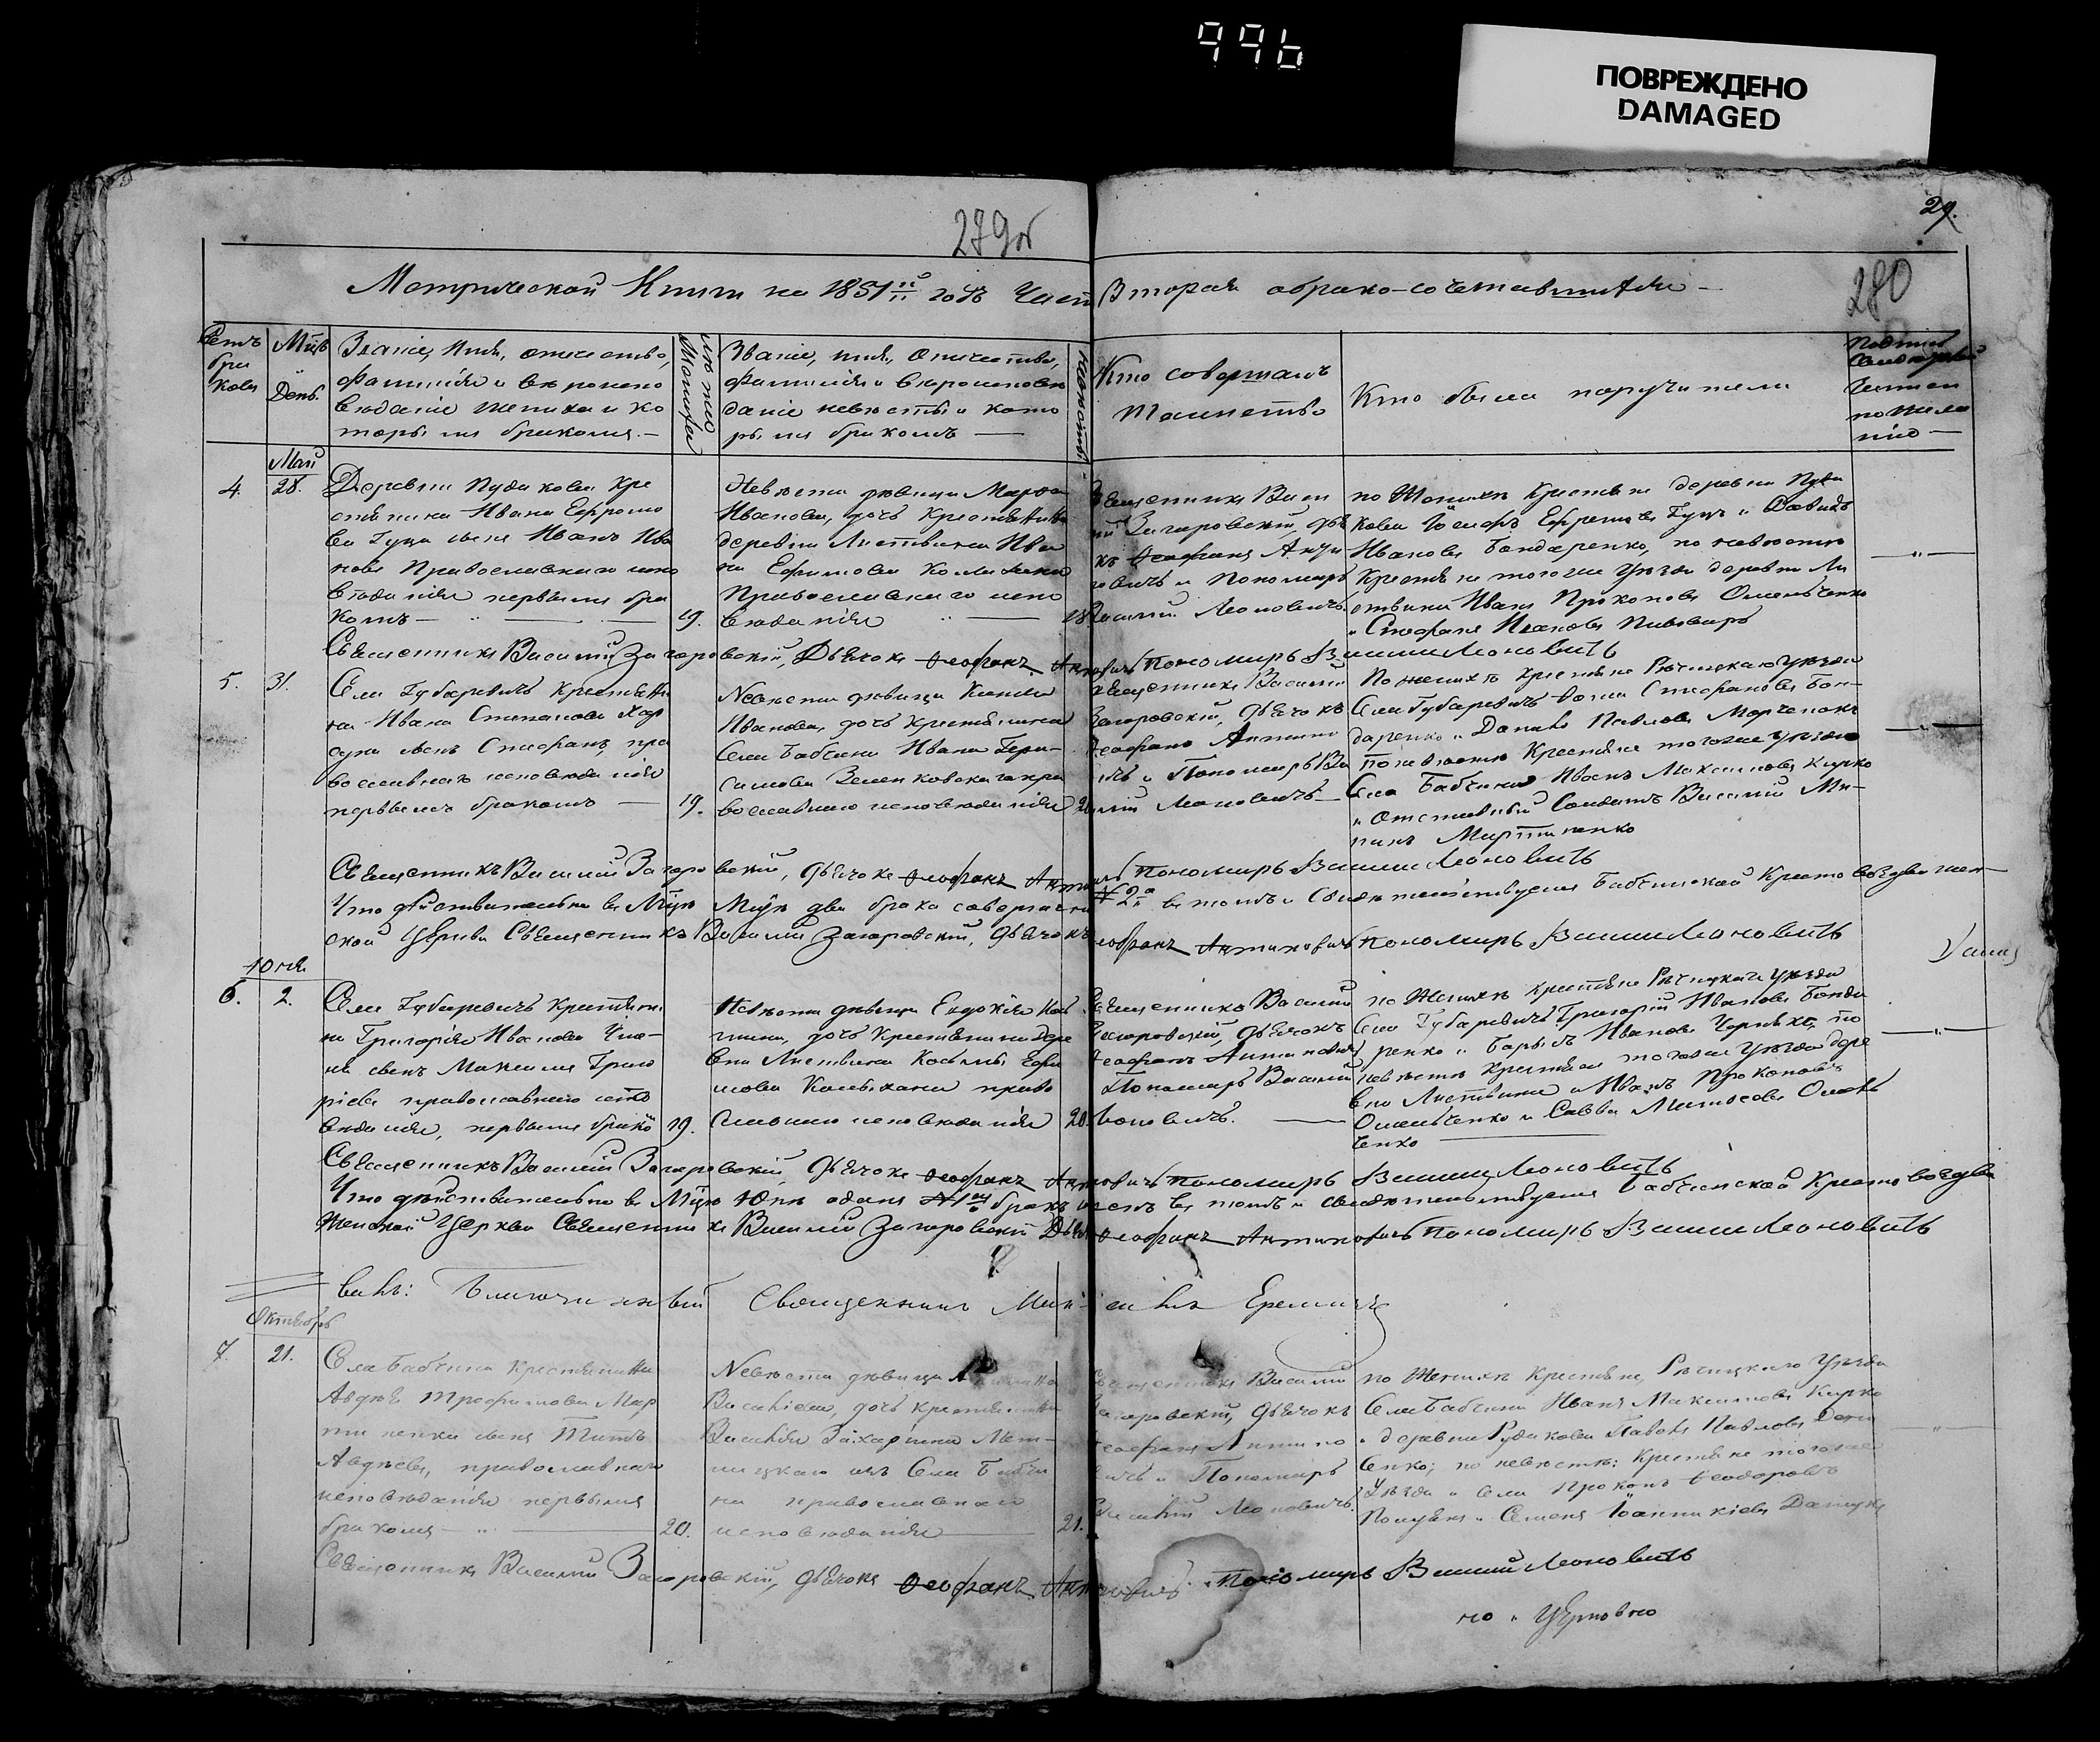 996
ПОВРЕЖДЕНО
DAMAGED
29.
279об
280
Метрической Книги на 1851й годъ Часть Вторая о брако-сочетавшихся
Счетъ браковъ
Мцъ День
Званіе, Имя, отчество,
фамилія и вѣроиспо
вѣданіе жениха и ко
торымъ бракомъ.
Званіе, имя, отчество,
фамилія и вѣроисповѣ
даніе невѣсты и кото
рымъ бракомъ
Кто совершалъ
Таинство
Кто были поручители
Май
4. 28.
Деревни Пудакова Кре
стьянина Ивана Ефремо
ва Гуца сынъ Иванъ Ива
новъ Православнаго испо
вѣданія первымъ бра
комъ 19.
Невѣста дѣвица Марѳа
Иванова, дочь Крестьянина
деревни Листвина Ива
на Ефимова
Православнаго испо
вѣданія 18
Священникъ Васи
лій Загоровскій, дьячо
къ Ѳеофанъ Анти
повичъ и Пономарь
Василій Леоновичъ.
по Женихѣ Крестьяне деревни Пуда
кова Іосифъ Ефремовъ Гуцъ и Давидъ
Ивановъ Бондаренко, по невѣстѣ
Крестьяне того же уѣзда деревни Ли
ствина Иванъ Прокоповъ Омельченко
и Стефанъ Ивановъ Пивоваръ
Священникъ Василій Загоровскій, Дьячокъ Ѳеофанъ Антиповичъ Пономарь Василій Леоновичъ
5. 31.
Села Губаревичъ Крестьяни
на Ивана Степанова
сынъ Стефанъ, пра
вославнаго исповѣданія
первымъ бракомъ 19.
Невѣста дѣвица
Иванова, дочь Крестьянина
Села Бабчина Ивана Гера-
симова Зеленковскаго пра
вославнаго исповѣданія
Священникъ Василій
Загоровскій, дьячокъ
Ѳеофанъ Антипо
вичъ и Пономарь Ва
силій Леоновичъ
По женихѣ крестьяне Рѣчицкаго уѣзда
Села Губаревичъ Ѳома Стефановъ Бон-
даренко и Данило Павловъ Марченокъ
по невѣстѣ Крестьяне того же уѣзда
Села Бабчина Иванъ Максимовъ Кирко
и Отставный Солдатъ Василій Ми-
нинъ Мартиненко
Священникъ Василій Загоровскій, дьячокъ Ѳеофанъ Антиповичъ Пономарь Василій Леоновичъ
Что дѣйствительно въ Мцѣ Маѣ два брака совершены № 2й въ томъ и свидѣтельствуемъ Бабчинской Кресто воздвижен-
ской Церкви Священникъ Василій Загоровскій, дьячокъ Ѳеофанъ Антиповичъ Пономарь Василій Леоновичъ
Юня
6. 2.
Села Губаревичъ Крестьяни
на Григорія Иванова
сынъ Максимъ Григо
ріевъ православнаго испо
вѣданія, первымъ бракомъ 19.
Невѣста дѣвица Евдокія Кось
мина, дочь Крестьянина Дере
вни Листвина Косьмы Ефи
мова православ
славнаго исповѣданія 20.
Священникъ Василій
Загоровскій, дьячокъ
Ѳеофанъ Антиповичъ
Пономарь Василій
Леоновичъ.
по Женихѣ крестьяне Рѣчицкаго уѣзда
Села Губаревичъ Григорій Ивановъ Бонда
ренко и Борысъ Ивановъ по
невѣстѣ крестьяне того же уѣзда дере
вни Листвина Иванъ Прокоповъ
Омельченко и Савва Омель
ченко
Священникъ Василій Загоровскій, Дьячокъ Ѳеофанъ Антиповичъ Пономарь Василій Леоновичъ
Что дѣйствительно въ Мцѣ Юнѣ одинъ №1й бракъ въ томъ и свидѣтельствуемъ Бабчинской Кресто воздви
женской Церкви Священникъ Василій Загоровскій Дьячокъ Ѳеофанъ Антиповичъ Пономарь Василій Леоновичъ
Благочинный Священникъ
Октябрь
7. 21.
Села Бабчина Крестьянина
Авдѣя Трофимова Мар
тиненка сынъ Титъ
Авдѣевъ, православнаго
исповѣданія первымъ
бракомъ 20.
Невѣста дѣвица
Василіева, дочь крестьянина
Василія Захаріина
изъ Села Бабчи
на православнаго
исповѣданія 21.
Священникъ Василій
Загоровскій, дьячокъ
Ѳеофанъ Антипо
вичъ и Пономарь
Василій Леоновичъ.
по Женихѣ Крестьяне, Рѣчицкаго Уѣзда
Села Бабчина Иванъ Максимовъ Кирко
и деревни Рудакова Павелъ Павловъ
по невѣстѣ: Крестьяне того же
Уѣзда и села Прокопъ Ѳеодоровъ
и Семенъ Іоанникіевъ
Священникъ Василій Загоровскій, дьячокъ Ѳеофанъ Антиповичъ Пономарь Василій Леоновичъ